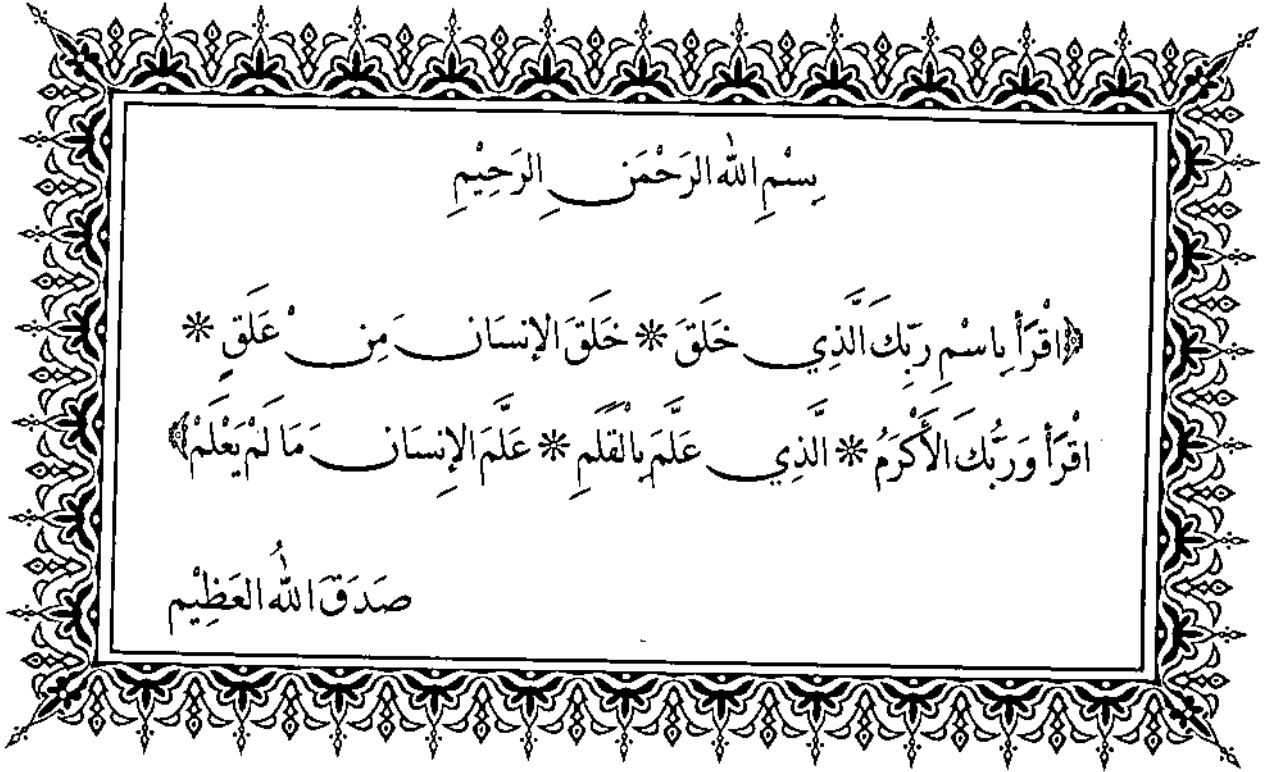 بِسْمِ اللّٰهِ الرَحْمَنِ الرَحِيْمِ
﴿اقْرَأْ بِاسْمِ رَبِّكَ الَّذِي خَلَقَ * خَلَقَ الإنسَانَ مِنْ عَلَقٍ *
اقْرَأْ وَرَبُّكَ الأَكْرَمُ * الَّذِي عَلَّمَ بِالْقَلَمِ * عَلَّمَ الإِنسَانَ مَا لَمْ يَعْلَمْ﴾
صَدَقَ اللّٰهُ العَظِيْم